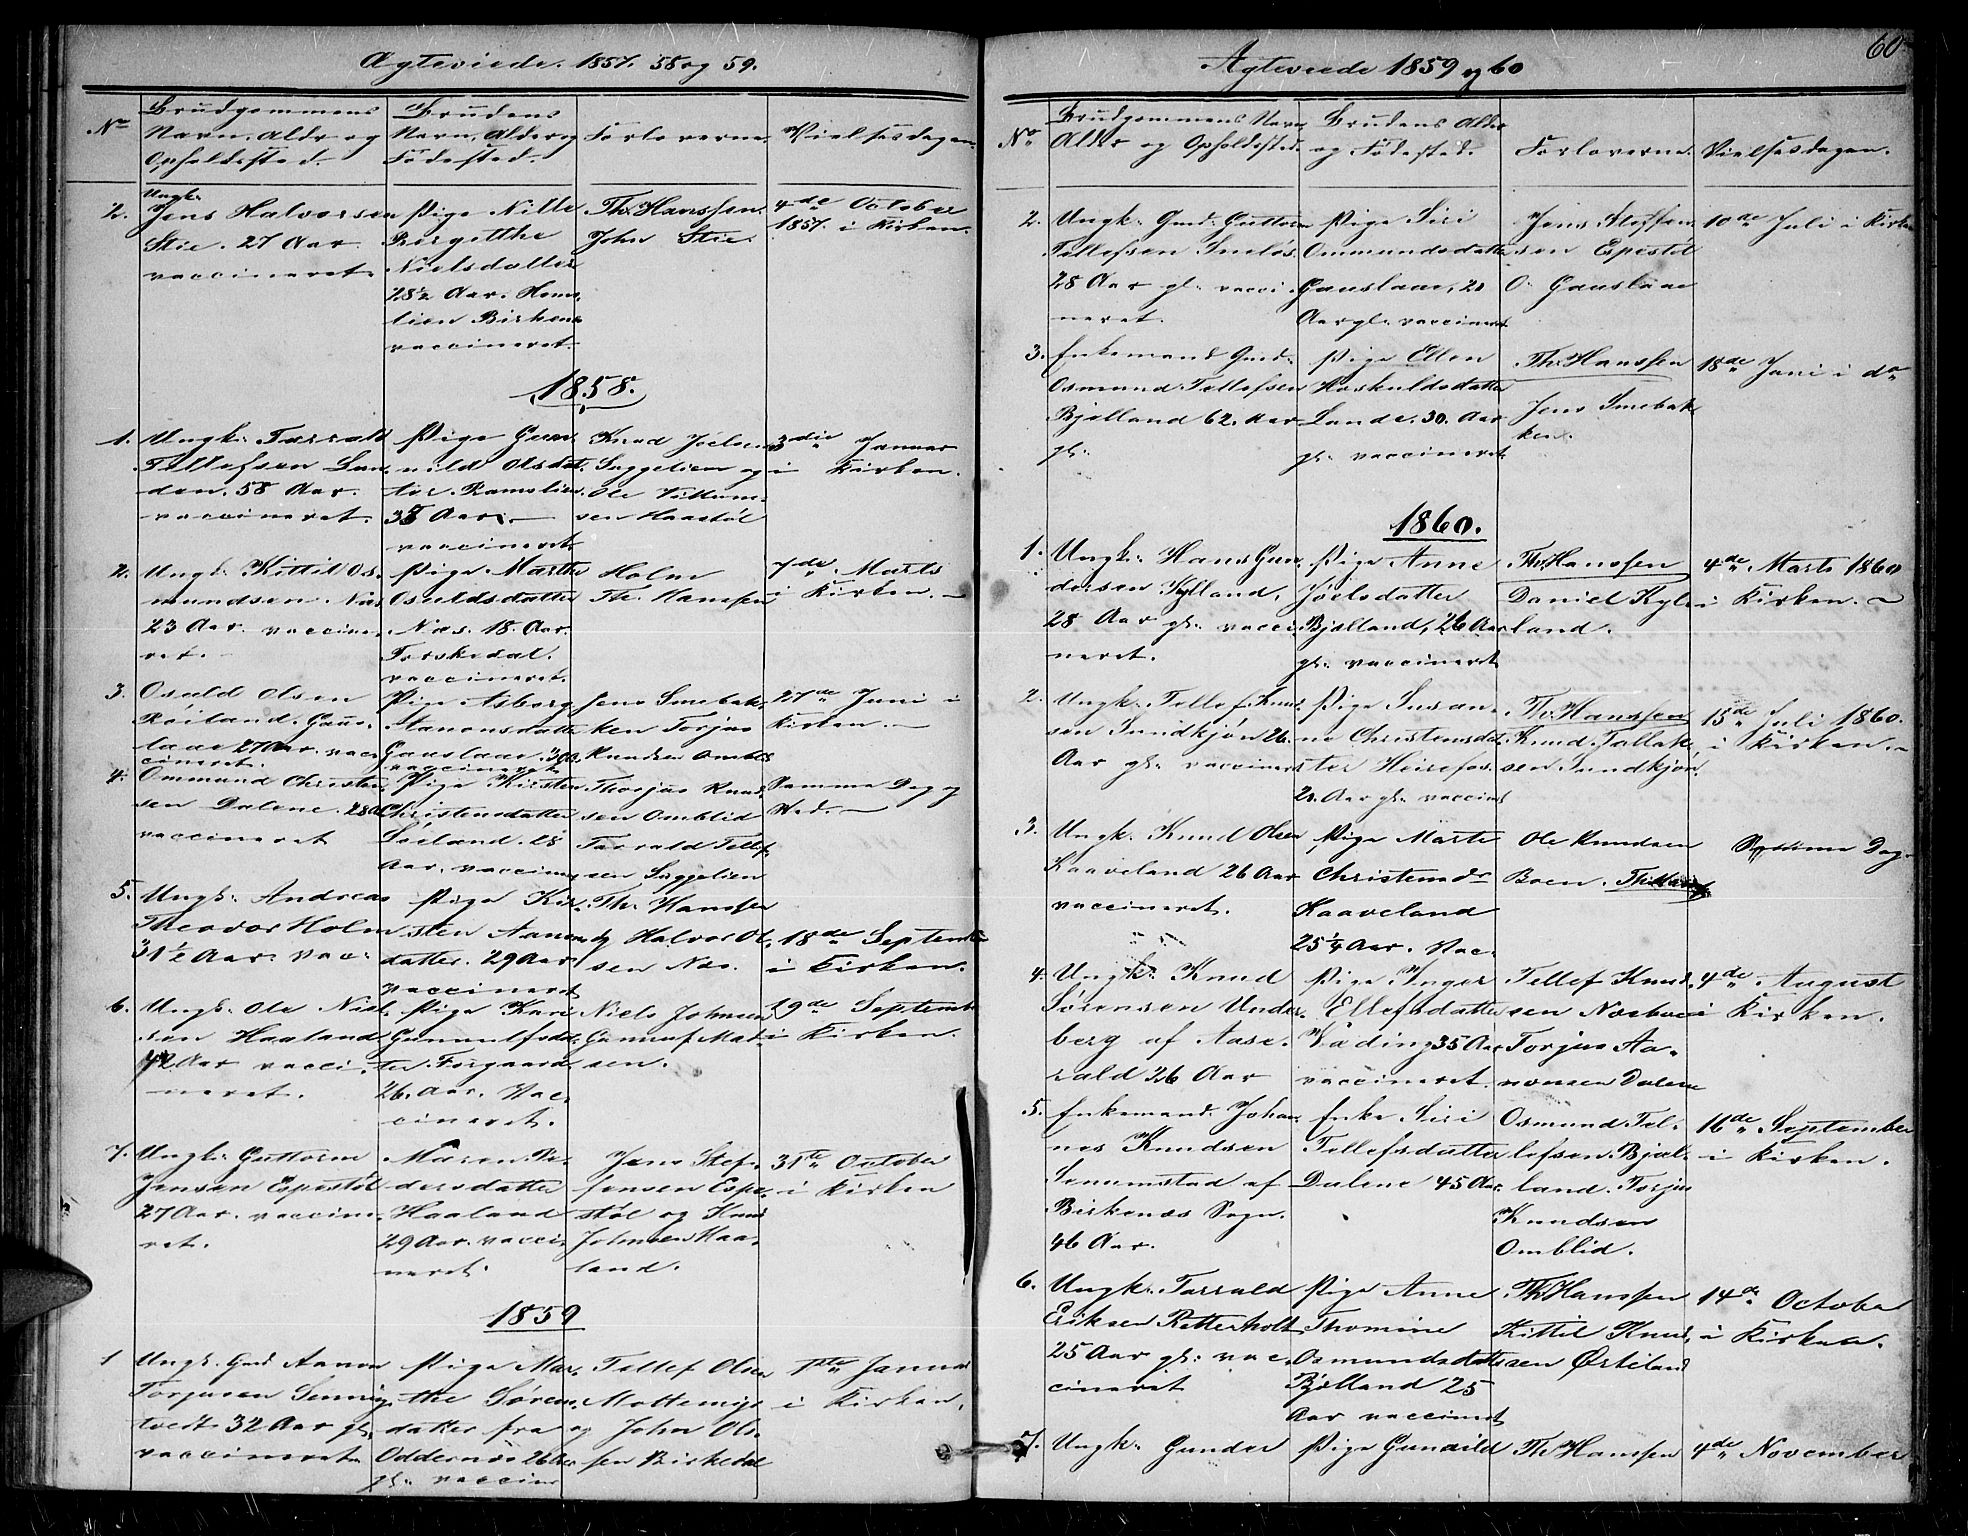 Ægteviede. 1857. 58 og 59.
No
Brudgommens
Navn, Alder og
Opholdssted.
Brudens
Navn, Alder og
Fødested.
Forloverne.
Vielsesdagen.
2.
Ungk.
Jens Halvorsen
Stie. 27 Aar
vaccineret.
Pige Nille
Birgitthe
Nielsdatter
28½ Aar.
Birkenæs
vaccineret.
Th. Hanssen.
John Stie.
4de October
1857. i Kirken.
1858.
1.
Ungk. Tarrald
Tellefsen
58 Aar.
vaccineret.
Pige Gun-
nild Olsdat-
ter. Ramslien.
38 Aar.
vaccineret
Knud Joelsen
Suggelien og
Ole
sen Haastøl
3die Januar
i Kirken.
2.
Ungk. Kittil Os-
mundsen. Næs
23 Aar. vaccine-
ret.
Pige Marthe
Osuldsdatter
Næs. 18. Aar.
Torskedal.
vaccineret.
Holm
Th. Hanssen
7de Marts
i Kirken.
3.
Osuld Olsen
Røiland. Gaus-
laae 27 Aar. vac-
cineret.
Pige Asborg
Aanonsdatter
Gauslaae. 30 Aar
vaccineret
Jens Smebak-
ken Torjus
Knudsen Omblid
27de Juni i
Kirken.
4.
Ommund Christen-
sen Dalene. 28 A
vaccineret
Pige Kirsten
Christensdatter
28
Aar. vaccine
Thorjus Knud-
sen Omblid
Tarrald Tellef-
sen Suggelien
Samme Dag og
Sted.
5.
Ungk. Andreas
Theodor Holm
31½ Aar. vac.
Pige Kir-
sten Aanons
datter. 29 Aar
vaccineret
Th. Hanssen
og Halvor Ol-
sen Næs.
18de September
i Kirken.
6.
Ungk. Ole Niel-
sen Haaland
42 Aar vacci-
neret.
Pige Kari
Gunnulfsdat-
ter. Forgaard.
26. Aar. Vac-
cineret.
Niels Johnsen
Gunnuf Mad-
sen.
19de September
i Kirken.
7.
Ungk. Guttorm
Jensen Espestøl
27 Aar. vaccine-
ret.
Maren Pe-
dersdatter
Haaland
29 Aar. vacci-
neret.
Jens Stef-
fensen Espe-
støl og Knud
Johnsen Haa-
land.
31te October
i Kirken
1859
1
Ungk. Gmd Aanon
Torjusen
tvedt 32 Aar gl.
vaccineret.
Pige Mar-
the Sørens-
datter fra
Oddernæs 26 Aar
gl. vaccine
Tellef Olsen
Mollemyr
og John Ol-
sen Birkedal
1ste Januar
i Kirken.
Ægteviede 1859 og 60
60
No
Brudgommens Navn
Alder og Opholdssted.
Brudens Alder
og Fødested.
Forloverne.
Vielsesdagen.
2.
Ungk. Gmd. Guttorm
Tellefsen
28 Aar gl. vacci-
neret.
Pige Siri
Ommundsdatter
Gauslaae, 20
Aar gl. vaccineret
Jens Steffen-
sen Espestøl
O. Gauslaae
10de Juli i Kirken
3.
Enkemand Gmd.
Osmund Tellefsen
Bjelland 62. Aar
gl.
Pige Ellen
Hoskuldsdatter
Lande. 30. Aar
gl. vaccineret
Th. Hanssen
Jens Smebak-
ken.
18de Juni i do
1860.
1.
Ungk. Hans Gun-
dersen Kylland,
28 Aar gl. vacci-
neret.
Pige Anne
Joelsdatter
Bjelland, 26 Aar
gl. vaccineret
Th. Hanssen
Daniel Kyl-
land.
4de Marts 1860
i Kirken.
2.
Ungk. Tellef Knud-
sen Sundkjøn 26.
Aar gl. vaccineret
Pige Susan-
ne Christensdat-
ter Heirefos
20. Aar gl. vaccine
Th. Hanssen
Knud Tallak-
sen Sundkjøn.
15de Juli 1860.
i Kirken.
3.
Ungk. Knud Olsen
Kaaveland 26 Aar
vaccineret.
Pige Marte
Christensdr
Kaaveland
25¼ Aar. Vac.
Ole Knudsen
Boen. Th. Hanssen
Samme Dag
4.
Ungk. Knud
Sørensen Under-
berg af Aase-
rald 26 Aar
Pige Inger
Ellefsdatter
Væding 35 Aar
vaccineret.
Tellef Knud-
sen
Torjus Aa-
nonsen Dalene
4de August
i Kirken.
5.
Enkemand. Johan-
nes Knudsen
Senumstad af
Birkenæs Sogn.
46 Aar.
Enke Siri
Tellefsdatter
Dalene 45 Aar.
Osmund Tel-
lefsen. Bjel-
land. Torjus
Knudsen
Omblid.
16de September
i Kirken.
6.
Ungk. Tarrald
Eriksen Retterholt
25 Aar gl. vac-
cineret
Pige Anne
Thomine
Osmundsdatter
Bjelland 25
Aar vaccineret
Th. Hanssen
Kittil Knud-
sen Ørteland
14de October
i Kirken.
7.
Ungk. Gunder
Pige Gunnild
Th Hanssen
4de November